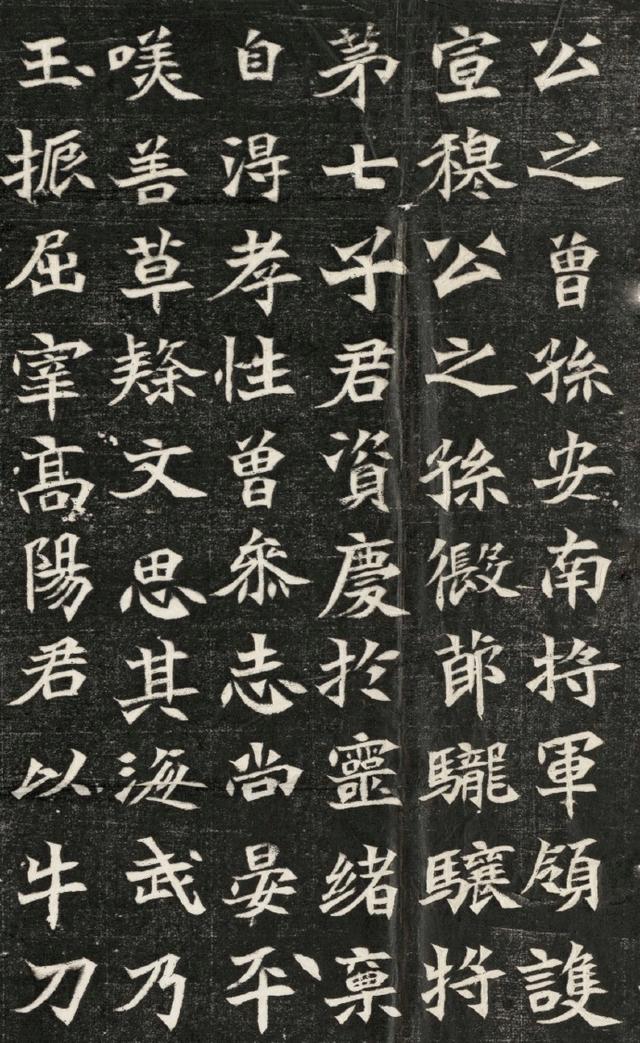 公之曾孫安南將軍領護
宣穆公之孫假節䮾驤將
苐七子君資慶於靈緒稟
自淂孝性曾叅志尚晏平
善草隷文思其海武乃
玉振屈宰髙陽君以牛刀